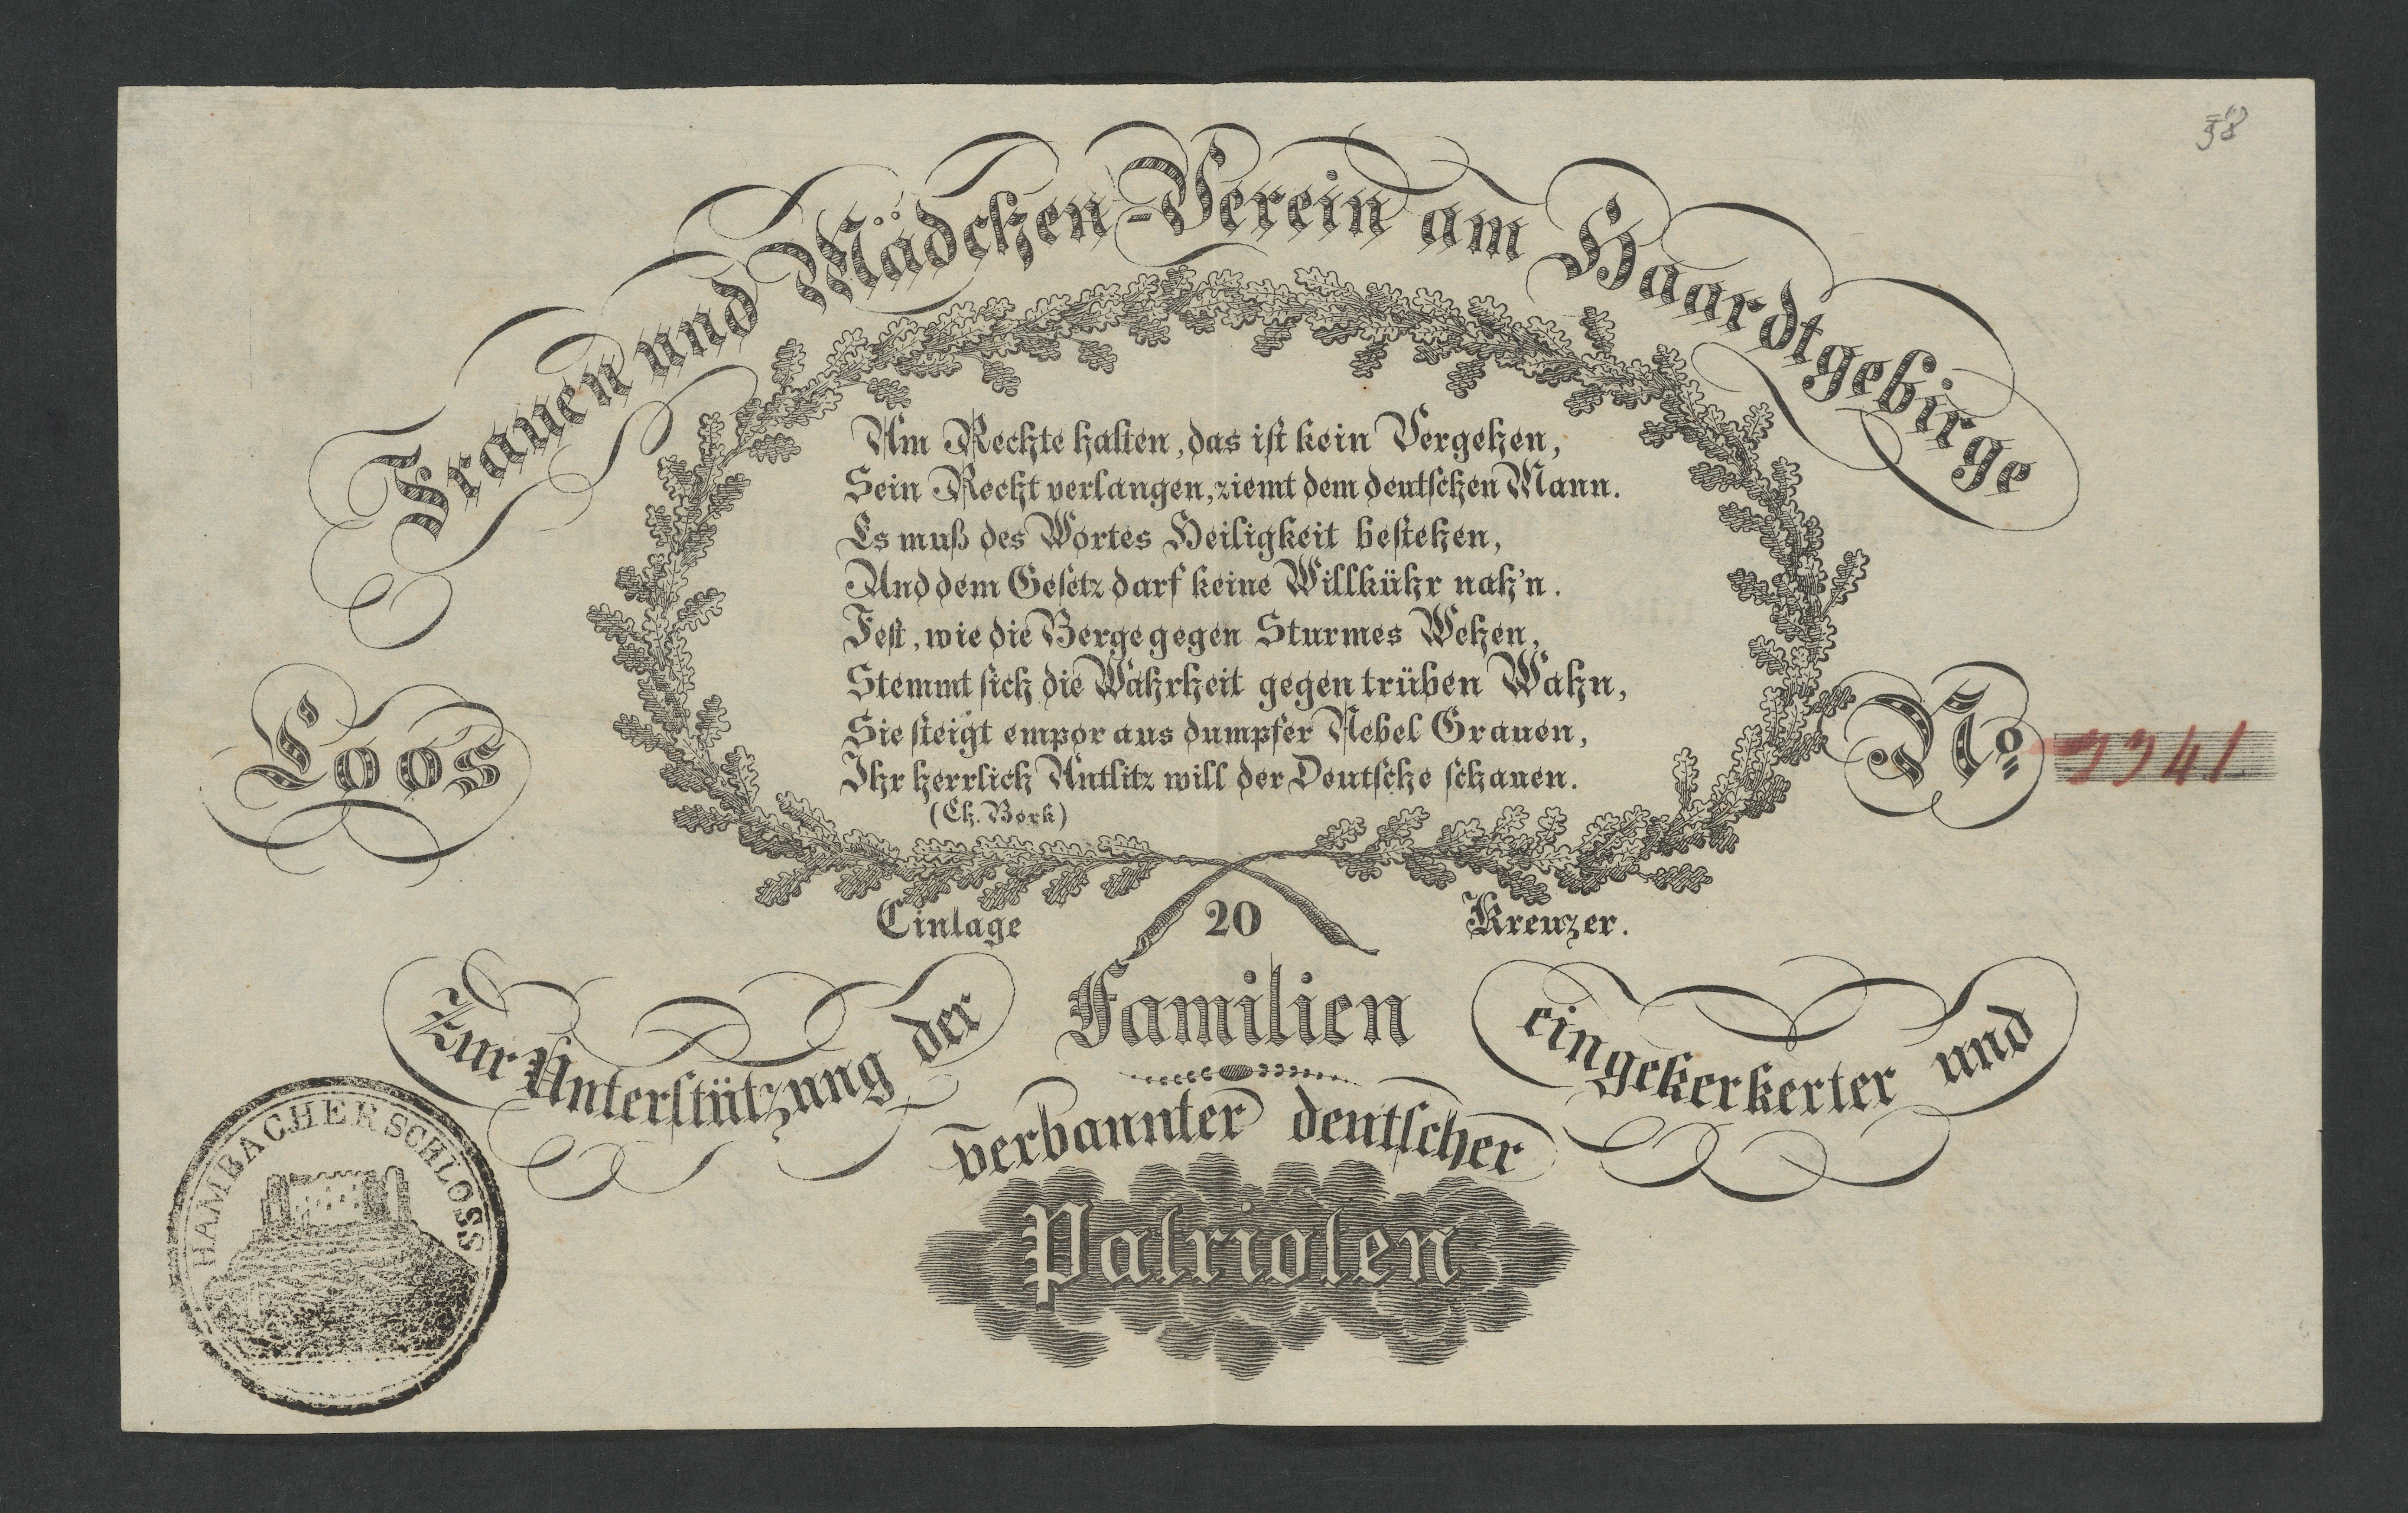 58
Frauen und Mädchen-Verein am Haardtgebirge
Am Rechte halten, das ist kein Vergehen,
Sein Recht verlangen, ziemt dem deutschen Mann.
Es muß des Wortes Heiligkeit bestehen,
Und dem Gesetz darf keine Willkühr nah'n.
Fest, wie die Berge gegen Sturmes Wehen,
Stemmt sich die Wahrheit gegen trüben Wahn,
Sie steigt empor aus dumpfer Nebel Grauen,
Ihr herrlich Antlitz will der Deutsche schauen.
(Ch. Bork)
Loos
No 3341
Einlage 20 Kreuzer.
Zur Unterstützung der Familien eingekerkerter und
verbannter deutscher
Patrioten
HAMBACHER SCHLOSS